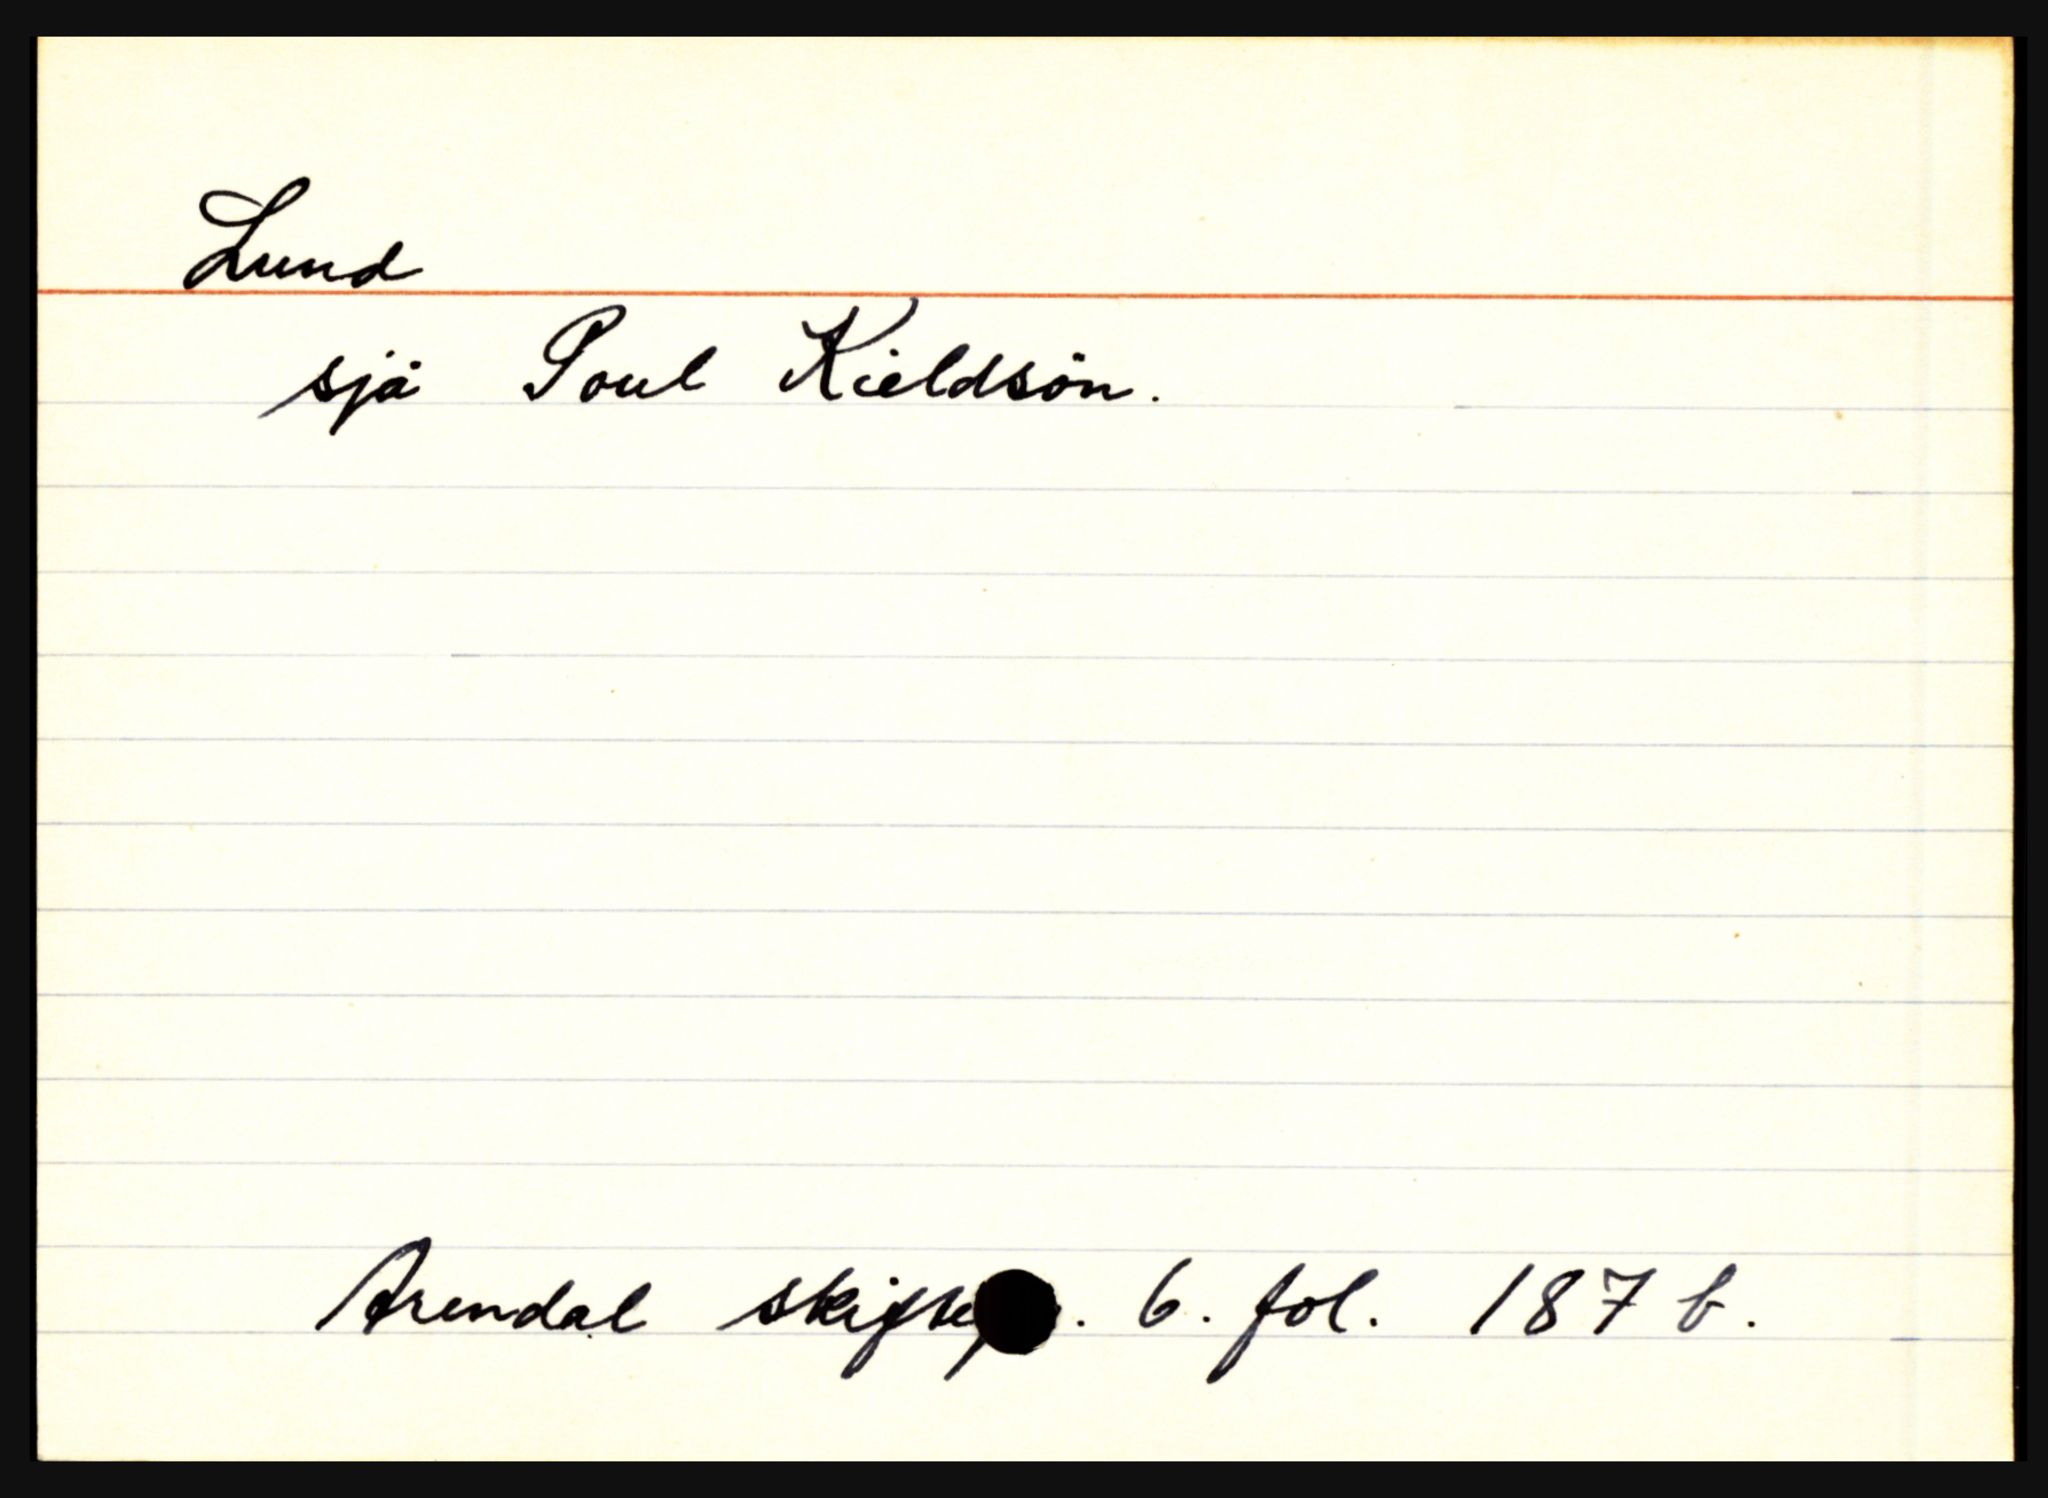 Lund
sjå Poul Kieldsön.
Arendal 6. fol. 187 b.